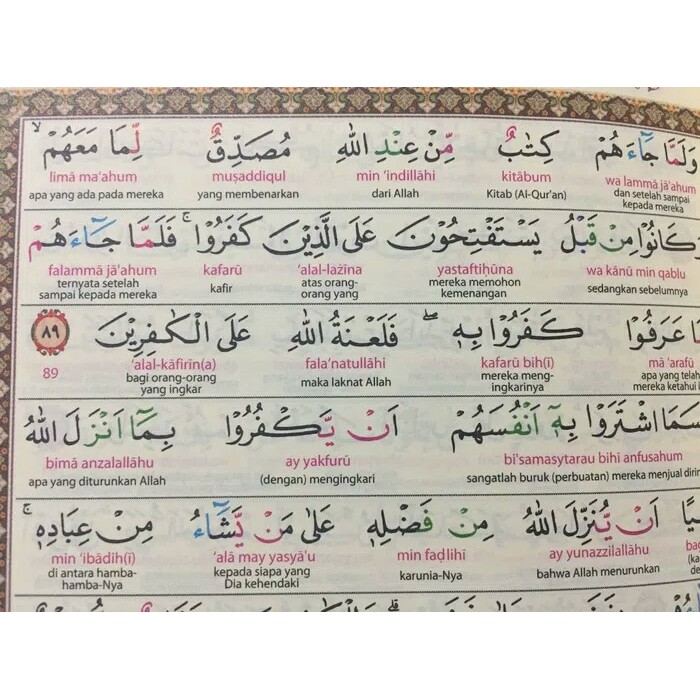 وَلَمَّا جَاۤءَهُمْ كِتٰبٌ مِّنْ عِنْدِ اللّٰهِ مُصَدِّقٌ لِّمَا مَعَهُمْۙ
wa lammā jā'ahum kitābum min 'indillāhi muṣaddiqul limā ma'ahum
dan setelah sampai kepada mereka Kitab (Al-Qur'an) dari Allah yang membenarkan apa yang ada pada mereka
وَكَانُوْا مِنْ قَبْلُ يَسْتَفْتِحُوْنَ عَلَى الَّذِيْنَ كَفَرُوْاۚ فَلَمَّا جَاۤءَهُمْ
wa kānū min qablu yastaftiḥūna 'alal-lażīna kafarū falammā jā'ahum
sedangkan sebelumnya mereka memohon kemenangan atas orang-orang yang kafir ternyata setelah sampai kepada mereka
عَرَفُوْا كَفَرُوْا بِهٖ ۖ فَلَعْنَةُ اللّٰهِ عَلَى الْكٰفِرِيْنَ ٨٩
mā 'arafū kafarū bih(ī) fala'natullāhi 'alal-kāfirīn(a) 89
apa yang telah mereka ketahui mereka mengingkarinya maka laknat Allah bagi orang-orang yang ingkar
اشْتَرَوْا بِهٖٓ اَنْفُسَهُمْ اَنْ يَّكْفُرُوْا بِمَآ اَنْزَلَ اللّٰهُ
bi'samasytarau bihī anfusahum ay yakfurū bimā anzalallāhu
sangatlah buruk (perbuatan) mereka menjual (dengan) mengingkari apa yang diturunkan Allah
اَنْ يُّنَزِّلَ اللّٰهُ مِنْ فَضْلِهٖ عَلٰى مَنْ يَّشَاۤءُ مِنْ عِبَادِهٖۚ
ay yunazzilallāhu min faḍlihī 'alā may yasyā'u min 'ibādih(ī)
bahwa Allah menurunkan karunia-Nya kepada siapa yang Dia kehendaki di antara hamba-hamba-Nya